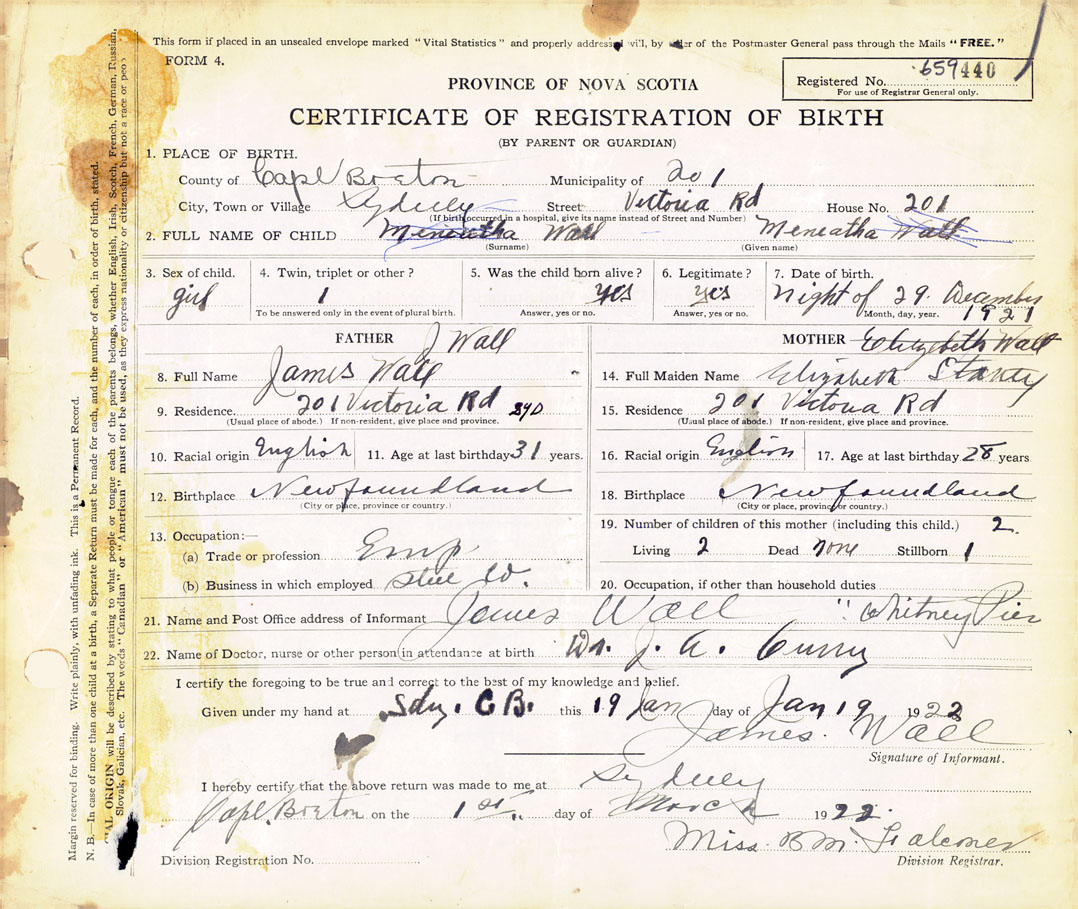 This form if placed in an unsealed envelope marked "Vital Statistics" and properly addressed will, by order of the Postmaster General pass through the Mails "FREE."
FORM 4.
Registered No. 659440
For use of Registrar General only.
PROVINCE OF NOVA SCOTIA
CERTIFICATE OF REGISTRATION OF BIRTH
(BY PARENT OR GUARDIAN)
1. PLACE OF BIRTH.
County of Cape Breton Municipality of 201
City, Town or Village Sydney Street Victoria Rd House No. 201
(If birth occurred in a hospital, give its name instead of Street and Number)
2. FULL NAME OF CHILD Meneatha Wall Meneatha Wall
(Surname) (Given name)
3. Sex of child. 4. Twin, triplet or other? 5. Was the child born alive? 6. Legitimate? 7. Date of birth.
girl 1 yes yes Night of 29. December
To be answered only in the event of plural birth. Answer, yes or no. Answer, yes or no. Month, day, year. 1921
FATHER J Wall MOTHER Elizabeth Wall
8. Full Name James Wall 14. Full Maiden Name Elizabeth
9. Residence. 201 Victoria Rd SYD 15. Residence 201 Victoria Rd
(Usual place of abode.) If non-resident, give place and province. (Usual place of abode.) If non-resident, give place and province.
10. Racial origin English 11. Age at last birthday 31 years. 16. Racial origin English 17. Age at last birthday 28 years
12. Birthplace Newfoundland 18. Birthplace Newfoundland
(City or place, province or country.) (City or place, province or country.)
19. Number of children of this mother (including this child.) 2.
13. Occupation:—
Living 2 Dead none Stillborn 1
(a) Trade or profession Emp
(b) Business in which employed Steel Co. 20. Occupation, if other than household duties
21. Name and Post Office address of Informant James Wall " Whitney Pier
22. Name of Doctor, nurse or other person in attendance at birth Dr. J. A. Curry
I certify the foregoing to be true and correct to the best of my knowledge and belief.
Given under my hand at Sdy. C B. this 19 Jan day of Jan 19 1922
James. Wall
Signature of Informant.
I hereby certify that the above return was made to me at Sydney
Cape Breton on the 1st. day of March 1922.
Miss. B. M. Falconer
Division Registrar.
Division Registration No.
Margin reserved for binding. Write plainly, with unfading ink. This is a Permanent Record.
N. B.—In case of more than one child at a birth, a Separate Return must be made for each, and the number of each, in order of birth, stated.
ORIGIN will be described by stating to what people or tongue each of the parents belongs, whether English, Irish, Scotch, French, German, Russian,
Slovak, Galician, etc. The words "Canadian" or "American" must not be used, as they express nationality or citizenship but not a race or